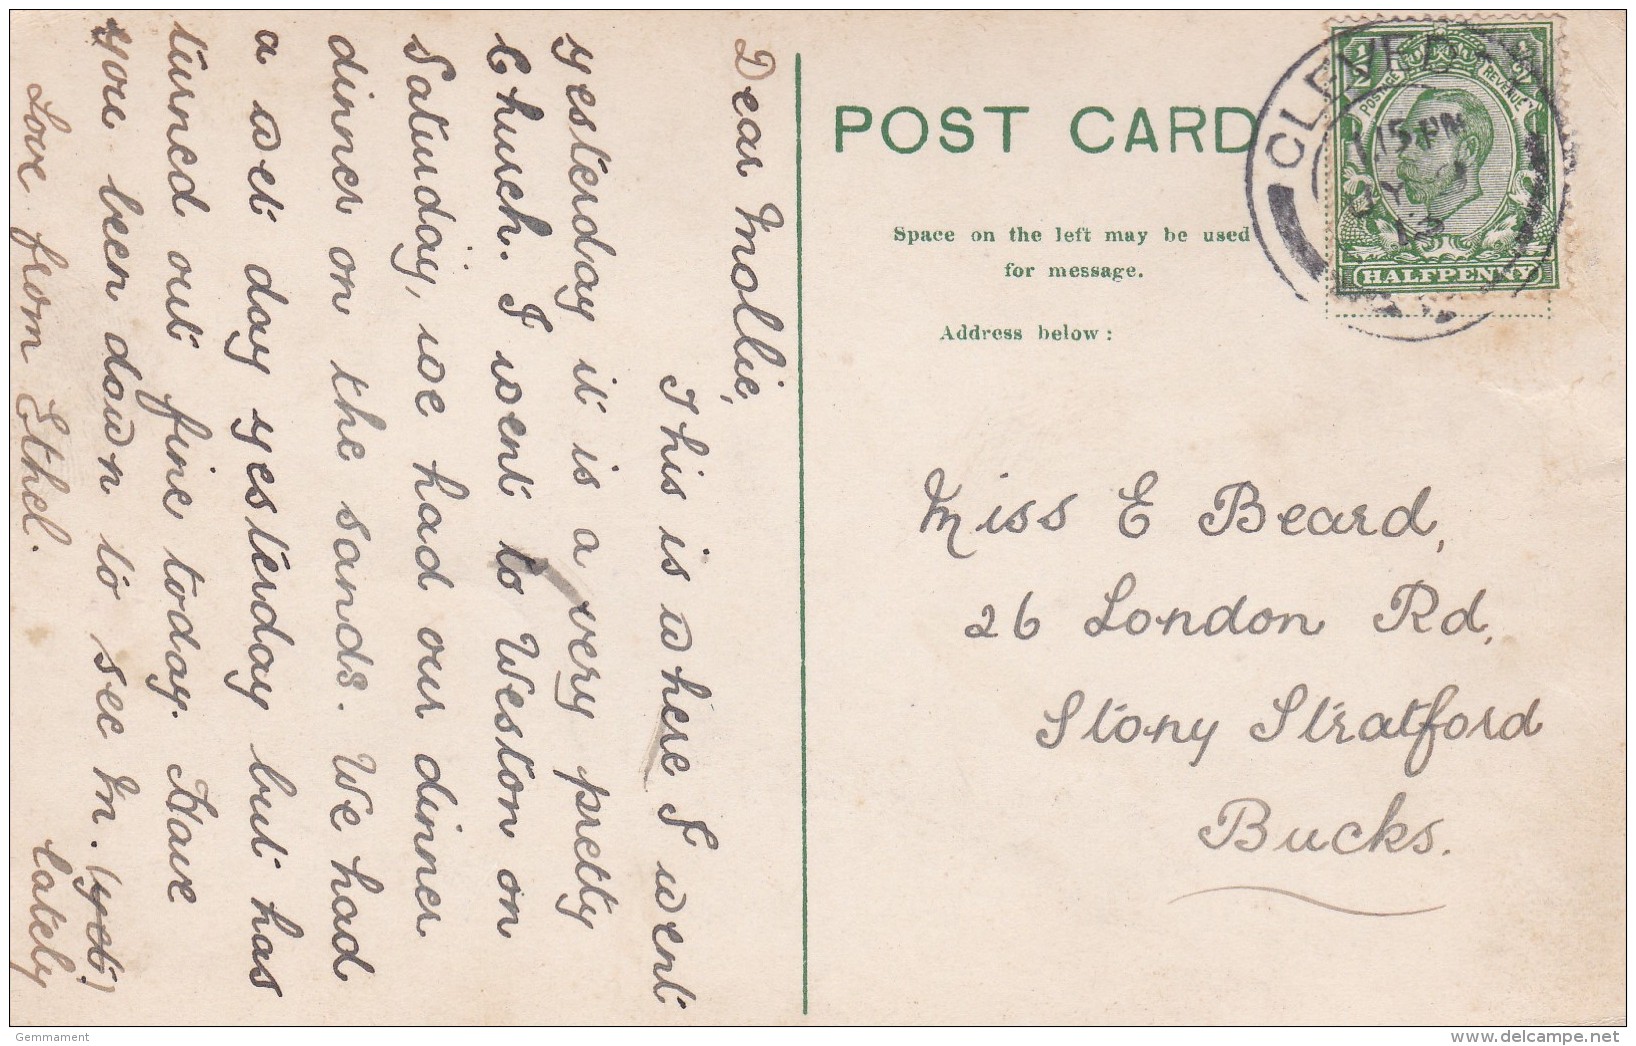 Dear Mollie,
This is where I went
yesterday it is a very pretty
Church. I went to Weston on
Saturday, we had our dinner
dinner on the sands. We had
a wet day yesterday but has
turned out fine today. Have
you been down to see M. (yet)
lately
Love from Ethel.
POST CARD
Space on the left may be used
for message.
Address below:
CLEVEDON
.15 PM
12
POSTAGE REVENUE
HALFPENNY
Miss E Beard,
26 London Rd,
Stony Stratford
Bucks.
Gemmament
delcampe.net